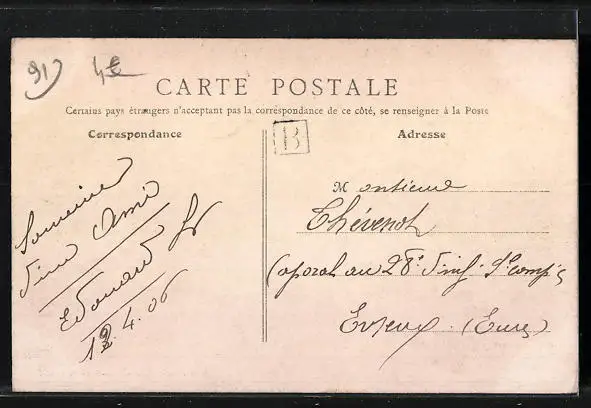 91)
4€
CARTE POSTALE
Certains pays étrangers n'acceptant pas la correspondance de ce côté, se renseigner à la Poste
Correspondance
Adresse
B
Souvenir
d'un Ami
Edouard
12.4.06
Monsieur
Thévenot
Caporal au 28e d'inf. 9e comp ie
Evreux (Eure)